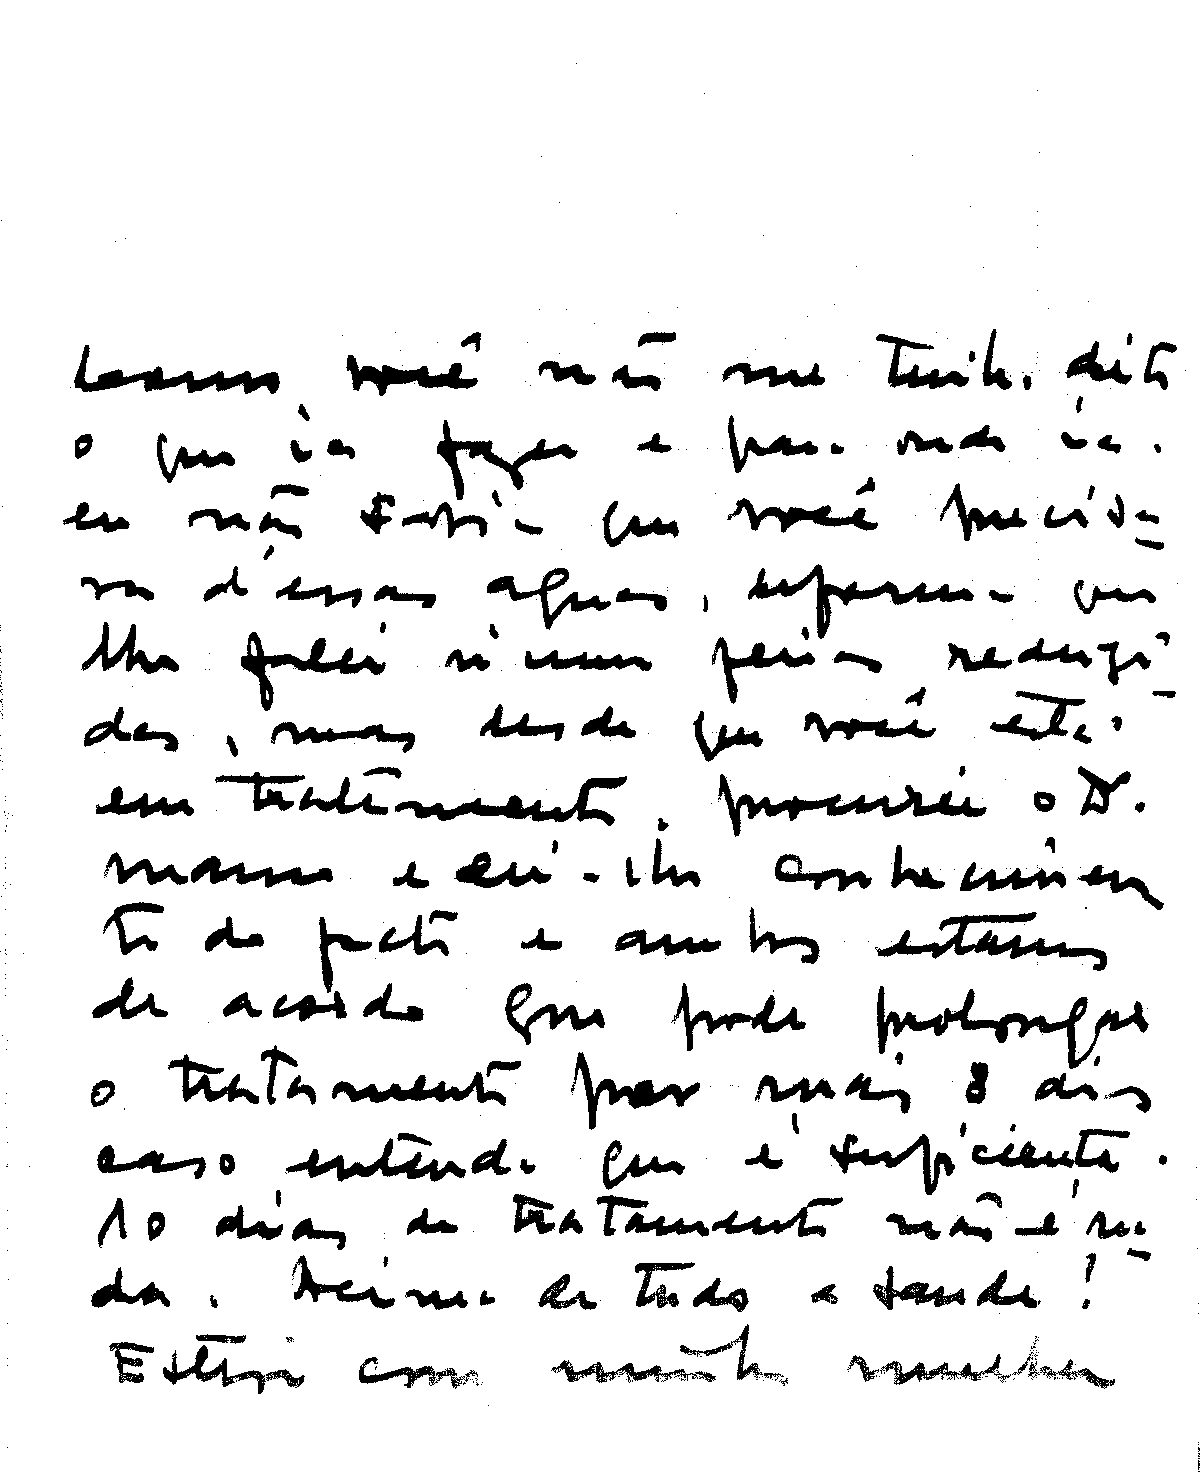 você não me tinha dito
o que ia fazer e para onde ia.
eu não sabia que você precisa-
va d'essas aguas, que
lhe falei n'umas ferias reduzi-
das, mas desde que você está
em tratamento, procurei o Dr.
e dei-lhe conhecimen
to do facto e ambos estamos
de acordo que pode prolongar
o tratamento por mais 8 dias
caso entenda que é suficiente.
10 dias de tratamento não é na-
da. Acima de tudo a saude!
Estou com minha mulher